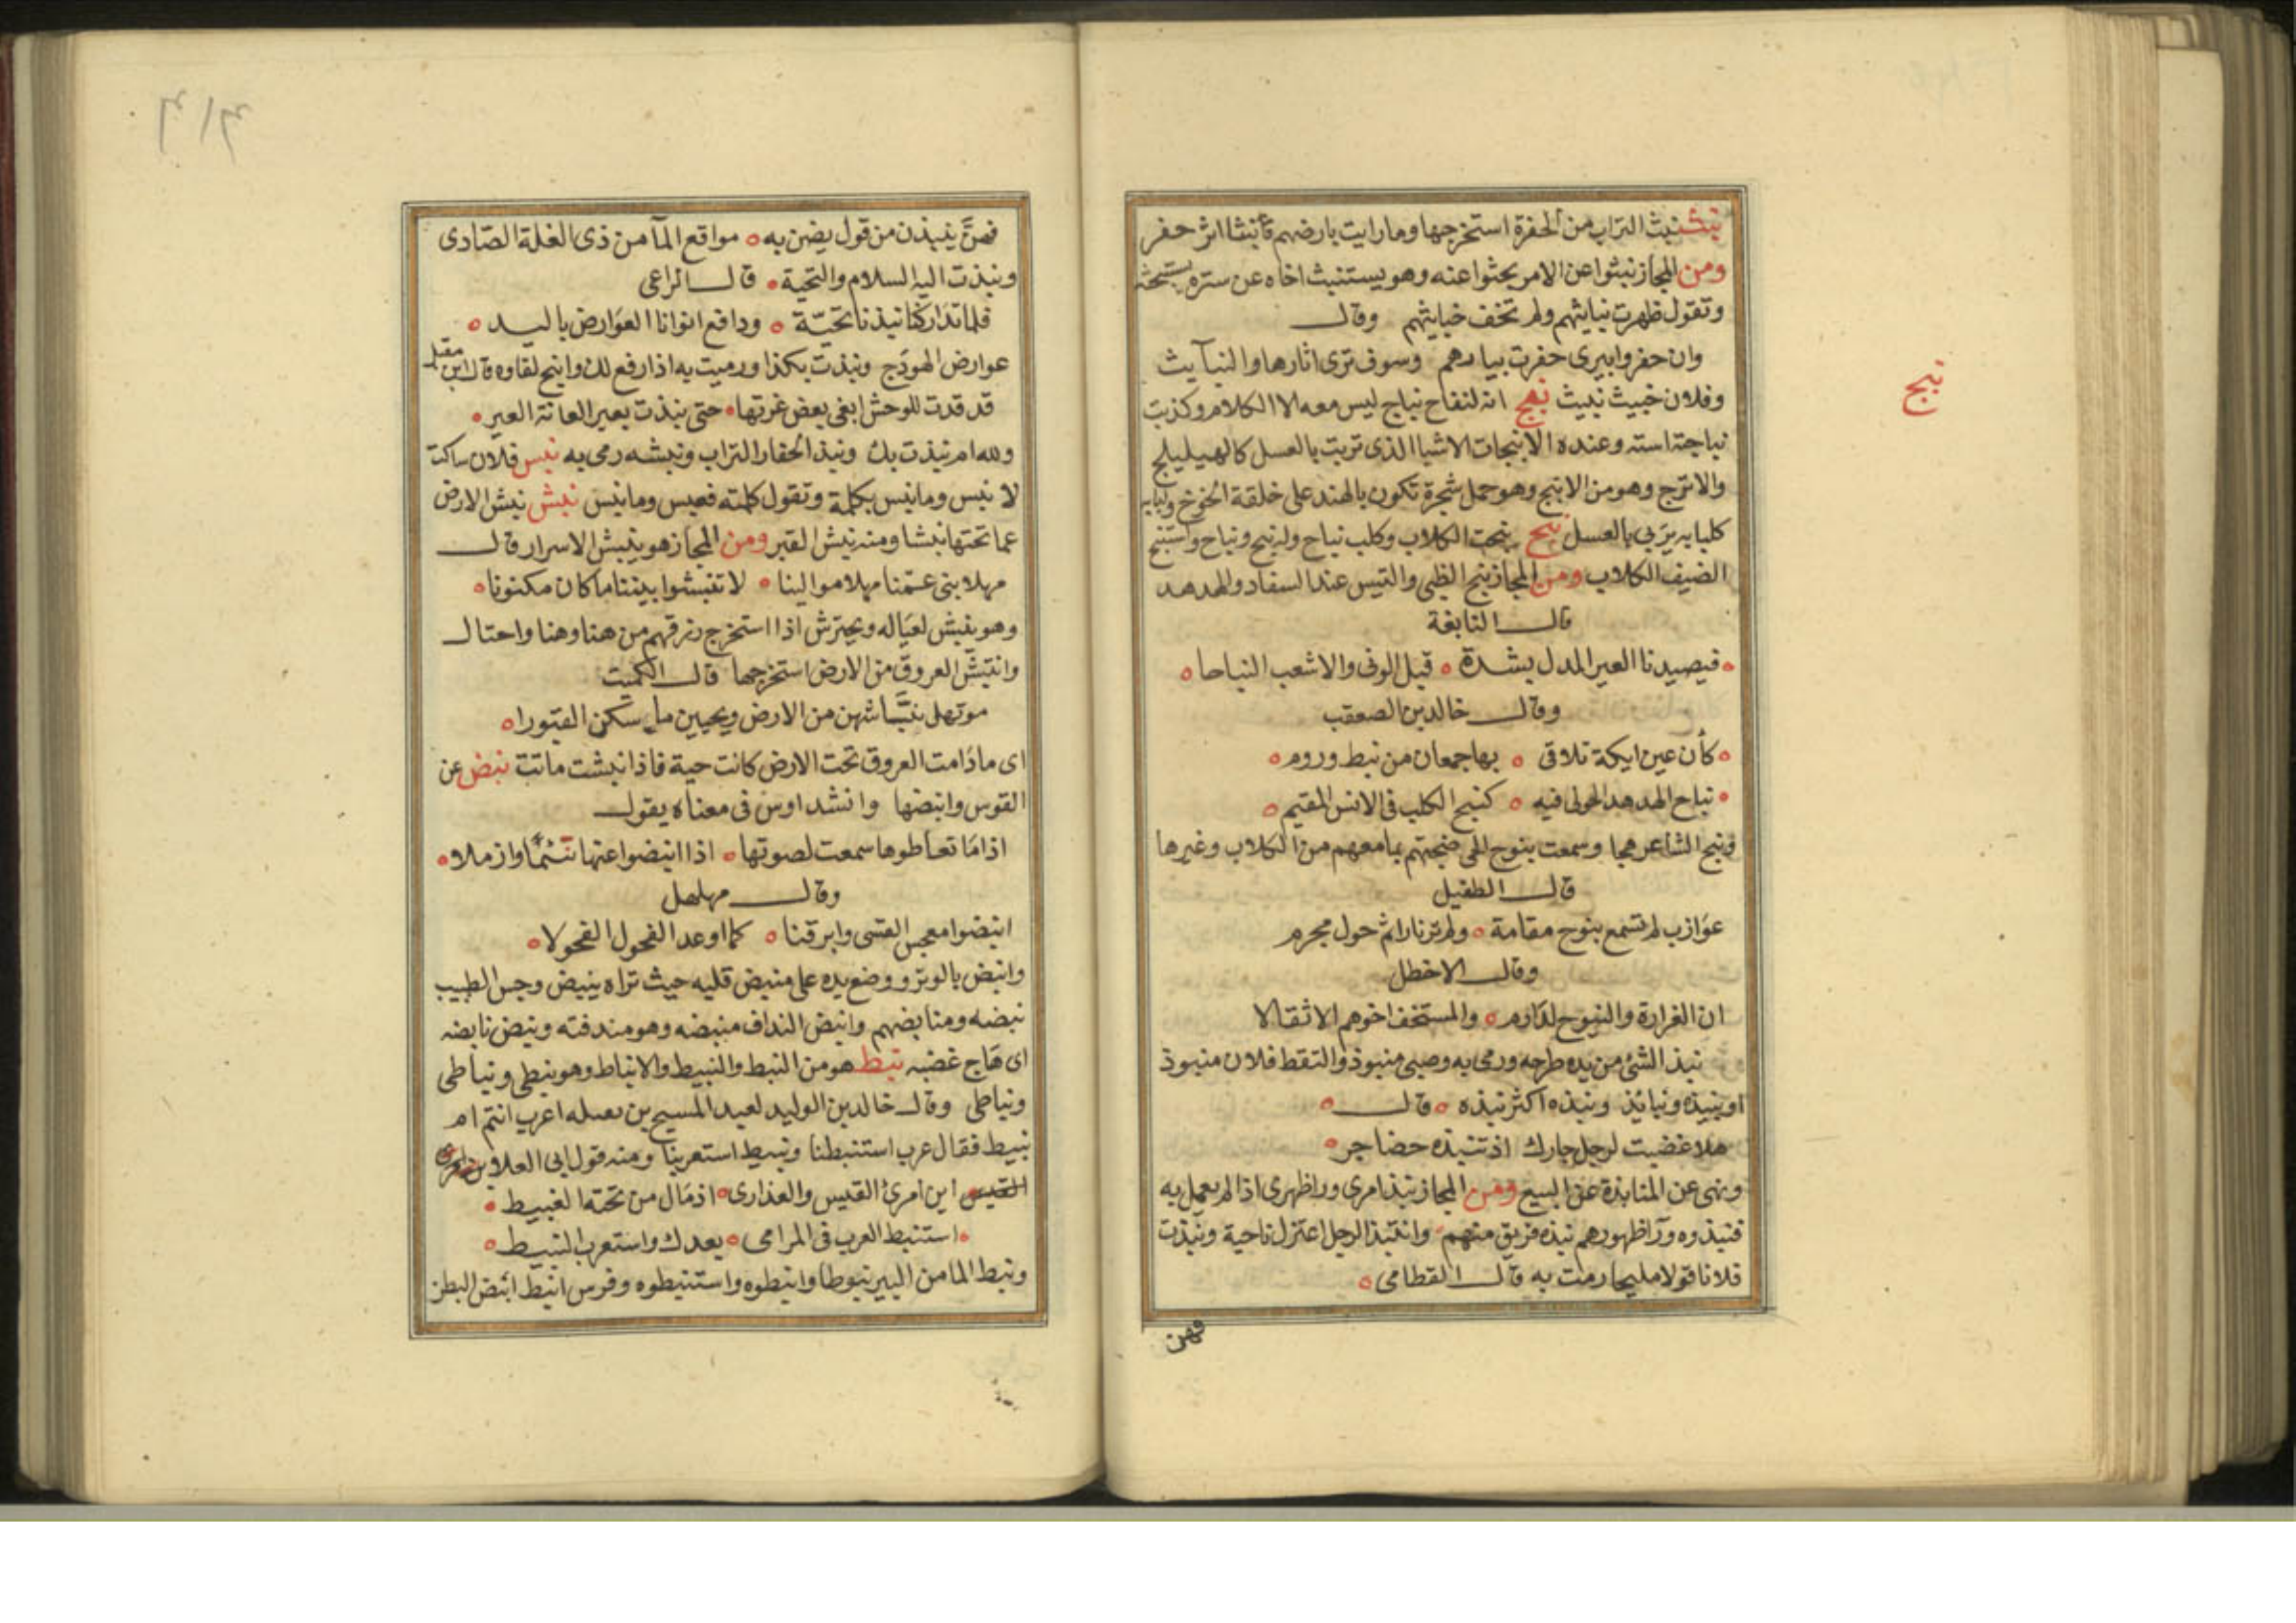 نبث نبث التراب من الحفرة استخرجها وما رايت بارضهم نبثا اثر حفر
ومن المجاز نبثوا عن الامر بحثوا عنه وهو يستنبث اخاه عن ستره يستبحثه
وتقول ظهرت نبايثهم ولم تخف خبايثهم وقال
وان حفروا بيرى حفرت بيارهم وسوف ترى اثارها والنبآيث
نبج
وفلان خبيث نبيث نبج انه لنفاج نباج ليس معه الا الكلام وكذبت
نباجته استه وعنده الانبجات الاشيا الذى تربت بالعسل كالهيليلج
والاترج وهو من الانبج وهو حمل شجرة تكون بالهند على خلقة الخوخ
كلبابه يربى بالعسل نبح نبحت الكلاب وكلب نباح وله نبح ونباح واستنبح
الضيف الكلاب ومن المجاز نبح الظبى والتيس عند السفاد والهدهد
قال النابغة
فيصيدنا العير المدل بشدة قبل الونى والاشعب النباحا
وقال خالد بن الصعقب
كأن عين ايكة تلاقى بها جمعان من نبط وروم
نباح الهدهد الحولى فيه كنبح الكلب فى الانس المقيم
ونبح الشاعر هجا وسمعت بنوح الحى ضجتهم بما معهم من الكلاب وغيرها
قال الطفيل
عوازب لم تسمع بنوح مقامة ولم تر نارا تم حول مجرم
وقال الاخطل
ان الغرارة والنبوح لدارم والمستخف اخوهم الاثقالا
نبذ الشئ من يده طرحه ورمى به وصبى منبوذ والتقط فلان منبوذ
او نبيذه ونبائذ ونبذه اكثر نبذه قال
هلا غضبت لرجل جارك اذ تنبذه حضاجر
ونهى عن المنابذة عن البيع ومن المجاز نبذ امرى ورا ظهرى اذا لم يعمل به
فنبذوه ورآ ظهورهم نبذه فريق منهم وانتبذ الرجل اعتزل ناحية ونبذت
فلانا قولا مليحا رمت به قال القطامى
فهن
فهنَّ ينبذن من قول يصبن به مواقع المآ من ذى الغلة الصادى
ونبذت اليه السلام والتحية قال الراعى
فلما تداركنا نبذنا تحيّة ودافع ادنانا العوارض باليد
عوارض الهودج ونبذت بكذا ورميت به اذا رفع لك واتيح لقاوه قال ابن مقبل
قد قدت للوحش ابغى بعض غرتها حتى نبذت بعير العانة العير
ولله ام نبذت بك ونبذ الحفار التراب ونبشه رمى به نبس فلان ساكت
لا نبس وما نبس بكلمة وتقول كلمته فعبس وما نبس نبش نبش الارض
عما تحتها نبشا ومنه نبش القبر ومن المجاز هو ينبش الاسرار قال
مهلا بنى عمنا مهلا موالينا لا تنبشوا بيننا ما كان مكنونا
وهو ينبش لعياله ويحترش اذا استخرج رزقهم من هنا وهنا واحتال
وانتبش العروق من الارض استخرجها قال الكميت
موتهل نبّاشهن من الارض ويحيين ما سكن القبورا
اى ما دامت العروق تحت الارض كانت حية فاذا نبشت ماتت نبض عن
القوس وانبضها وانشد اوس فى معناه يقول
اذا ما تعاطوها سمعت لصوتها اذا انبضوا عنها نئيما وازملا
وقال مهلهل
انبضوا معجس القسى وابرقنا كما اوعد الفحول الفحولا
وانبض بالوتر ووضع يده على منبض قلبه حيث تراه ينبض وجس الطبيب
نبضه ومنابضهم وانبض النداف منبضه وهو مندفته ونبض نابضه
اى هاج غضبه نبط هو من النبط والنبيط والانباط وهو نبطى ونباطى
ونباطى وقال خالد بن الوليد لعبد المسيح بن بعيله اعرب انتم ام
نبيط فقال عرب استنبطنا ونبيط استعربنا ومنه قول ابى العلا بن
القيس اين امرئ القيس والعذارى اذ مال من تحته الغبيط
استنبط العرب فى المرامى بعدك واستعرب النبيط
ونبط الما من البير نبوطا وانبطوه واستنبطوه وفرس انبط ابيض البطن